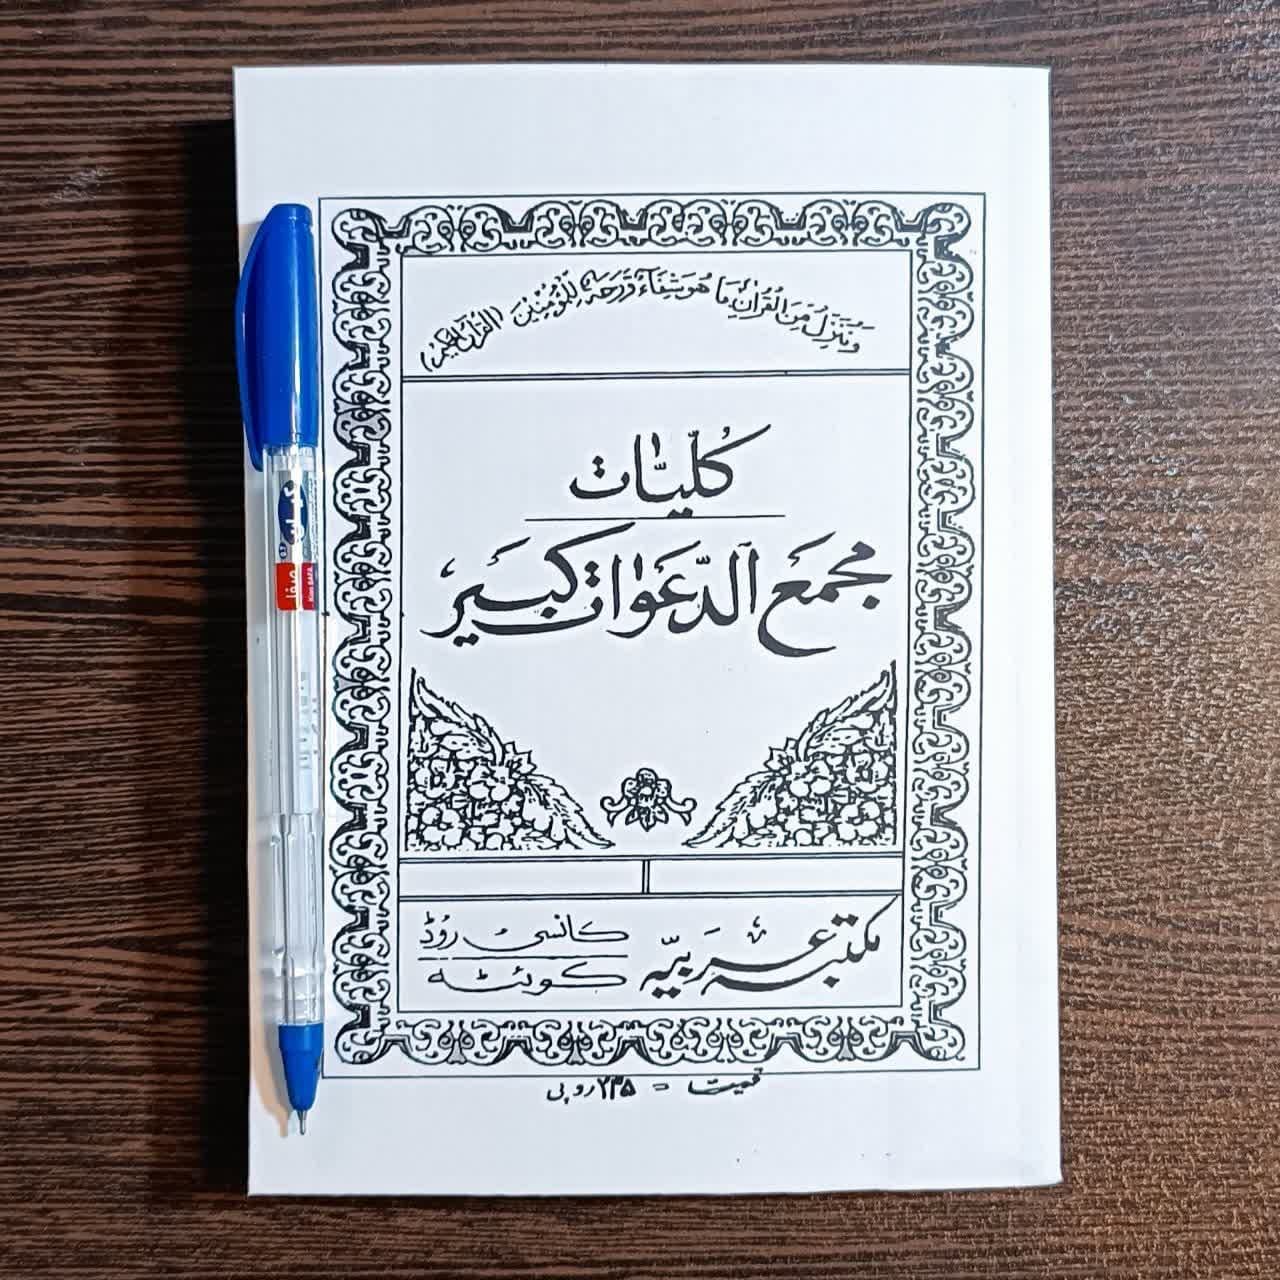 وَنُنَزِّلُ مِنَ الْقُرْاٰنِ مَا هُوَ شِفَاءٌ وَّرَحْمَةٌ لِّلْمُؤْمِنِيْنَ (القرآن الكريم)
كُلّیات
مجمَع الدّعَوات کبَیر
مکتبہ عَربیّہ
کانسی روڈ
کوئٹہ
قیمت = ۲۳۵ روپی
کیان
صفا